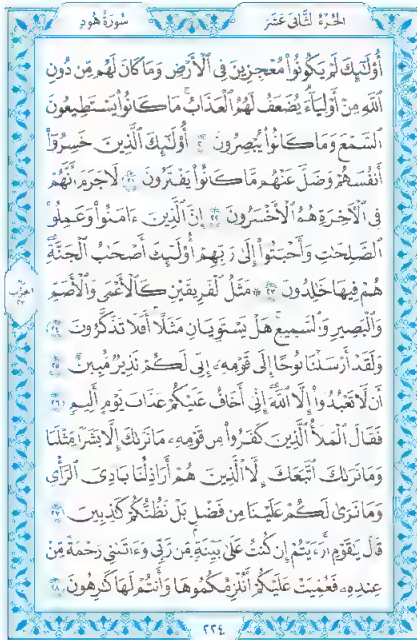 سُورَةُ هُودٍ
الجُزءُ الثَّانِي عَشَرَ
أُوْلَٰٓئِكَ لَمْ يَكُونُوا۟ مُعْجِزِينَ فِى ٱلْأَرْضِ وَمَا كَانَ لَهُم مِّن دُونِ
ٱللَّهِ مِنْ أَوْلِيَآءَ يُضَٰعَفُ لَهُمُ ٱلْعَذَابُ مَا كَانُوا۟ يَسْتَطِيعُونَ
ٱلسَّمْعَ وَمَا كَانُوا۟ يُبْصِرُونَ ٢٠ أُوْلَٰٓئِكَ ٱلَّذِينَ خَسِرُوٓا۟
أَنفُسَهُمْ وَضَلَّ عَنْهُم مَّا كَانُوا۟ يَفْتَرُونَ ٢١ لَا جَرَمَ أَنَّهُمْ
فِى ٱلْءَاخِرَةِ هُمُ ٱلْأَخْسَرُونَ ٢٢ إِنَّ ٱلَّذِينَ ءَامَنُوا۟ وَعَمِلُوا۟
ٱلصَّٰلِحَٰتِ وَأَخْبَتُوٓا۟ إِلَىٰ رَبِّهِمْ أُو۟لَٰٓئِكَ أَصْحَٰبُ ٱلْجَنَّةِ
هُمْ فِيهَا خَٰلِدُونَ ٢٣ ۞ مَثَلُ ٱلْفَرِيقَيْنِ كَٱلْأَعْمَىٰ وَٱلْأَصَمِّ
وَٱلْبَصِيرِ وَٱلسَّمِيعِ هَلْ يَسْتَوِيَانِ مَثَلًا أَفَلَا تَذَكَّرُونَ ٢٤
وَلَقَدْ أَرْسَلْنَا نُوحًا إِلَىٰ قَوْمِهِۦٓ إِنِّى لَكُمْ نَذِيرٌ مُّبِينٌ ٢٥
أَن لَّا تَعْبُدُوٓا۟ إِلَّا ٱللَّهَ إِنِّىٓ أَخَافُ عَلَيْكُمْ عَذَابَ يَوْمٍ أَلِيمٍ ٢٦
فَقَالَ ٱلْمَلَأُ ٱلَّذِينَ كَفَرُوا۟ مِن قَوْمِهِۦ مَا نَرَىٰكَ إِلَّا بَشَرًا مِّثْلَنَا
وَمَا نَرَىٰكَ ٱتَّبَعَكَ إِلَّا ٱلَّذِينَ هُمْ أَرَاذِلُنَا بَادِىَ ٱلرَّأْىِ
وَمَا نَرَىٰ لَكُمْ عَلَيْنَا مِن فَضْلٍۭ بَلْ نَظُنُّكُمْ كَٰذِبِينَ ٢٧
قَالَ يَٰقَوْمِ أَرَءَيْتُمْ إِن كُنتُ عَلَىٰ بَيِّنَةٍ مِّن رَّبِّى وَءَاتَىٰنِى رَحْمَةً مِّنْ
عِندِهِۦ فَعُمِّيَتْ عَلَيْكُمْ أَنُلْزِمُكُمُوهَا وَأَنتُمْ لَهَا كَٰرِهُونَ ٢٨
حزب
٢٣
٢٢٤